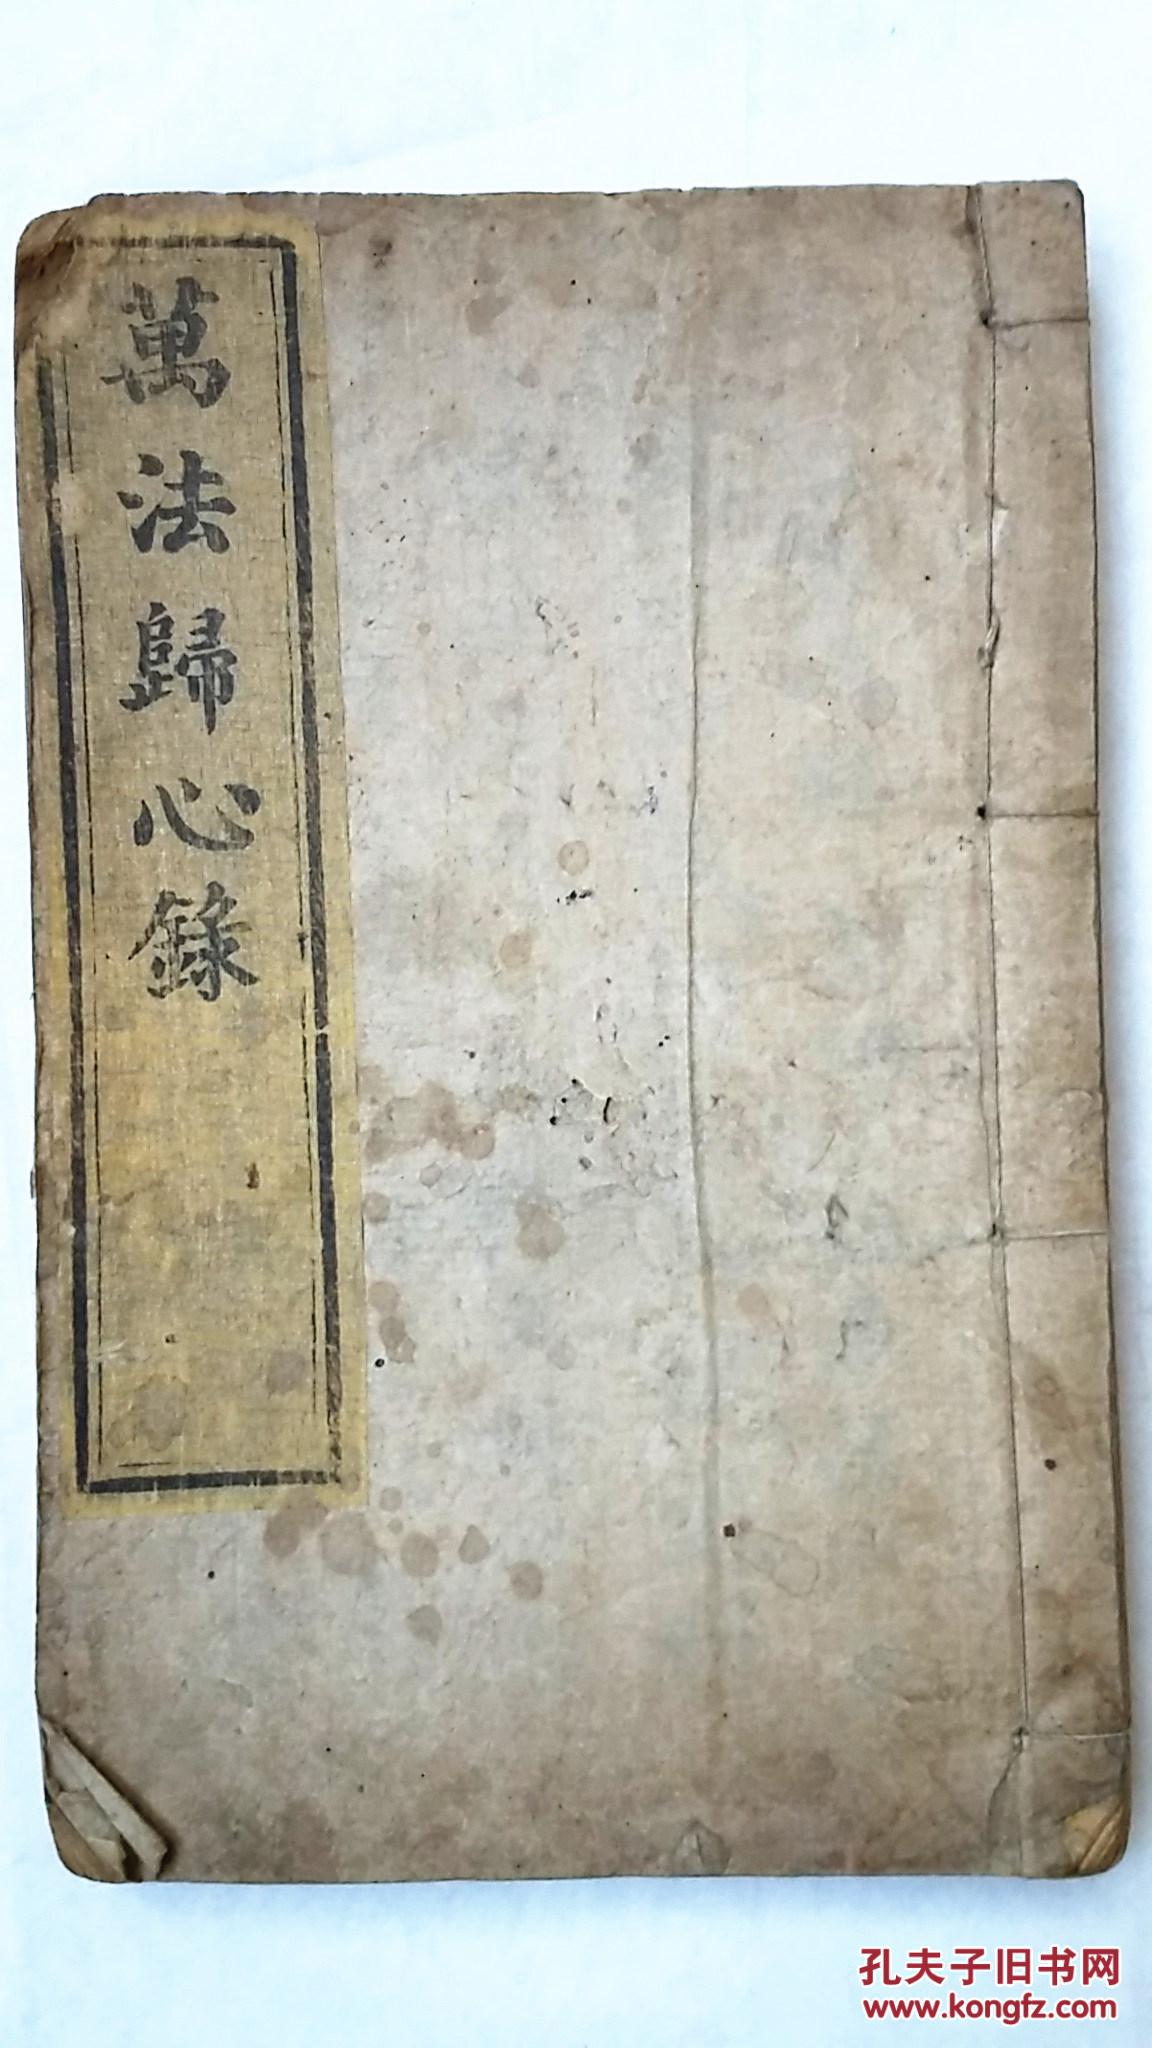 萬法歸心錄
孔夫子旧书网
www.kongfz.com